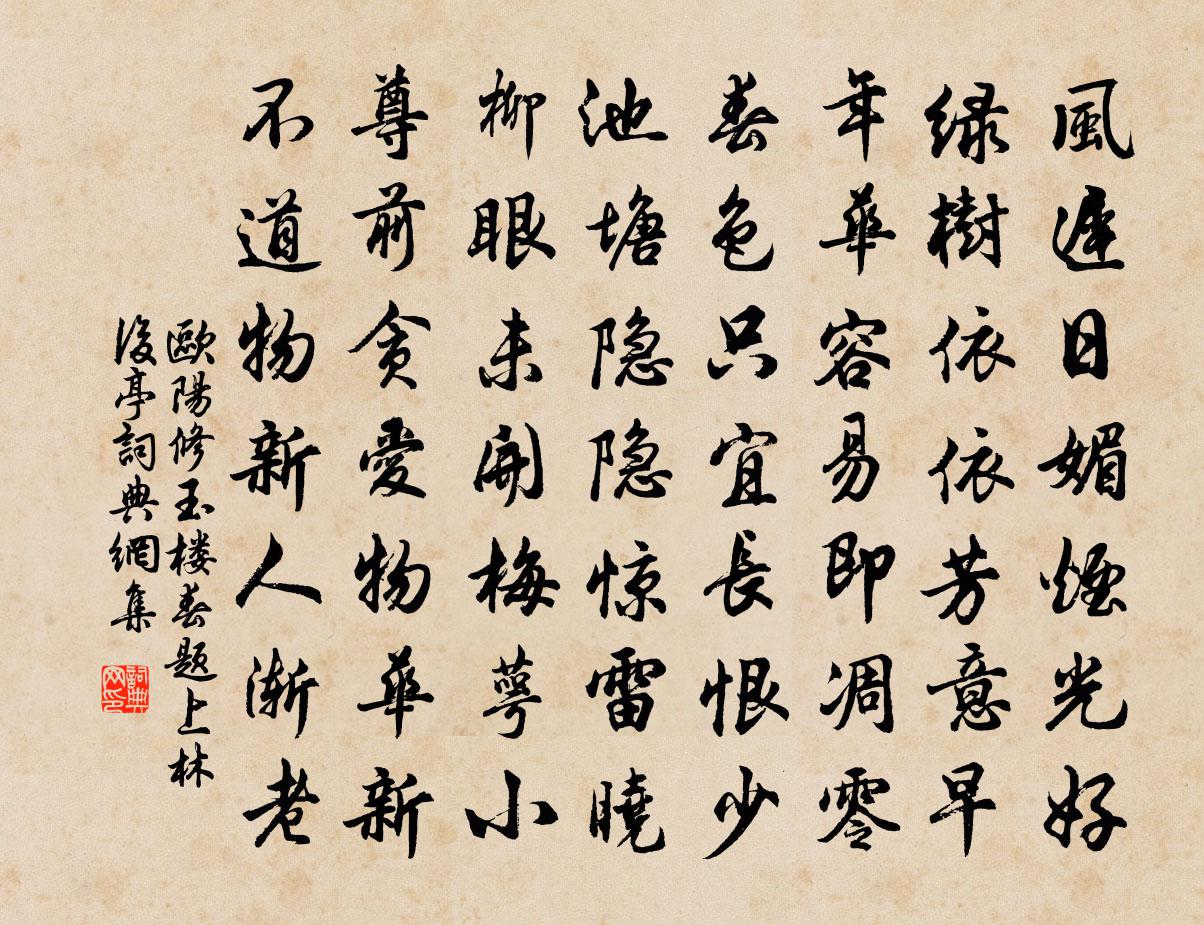 風遲日媚煙光好
綠樹依依芳意早
年華容易即凋零
春色只宜長恨少
池塘隐隐惊雷曉
柳眼未開梅萼小
尊前贪愛物華新
不道物新人漸老
歐陽修玉楼春題上林
後亭詞典網集
詞典网印